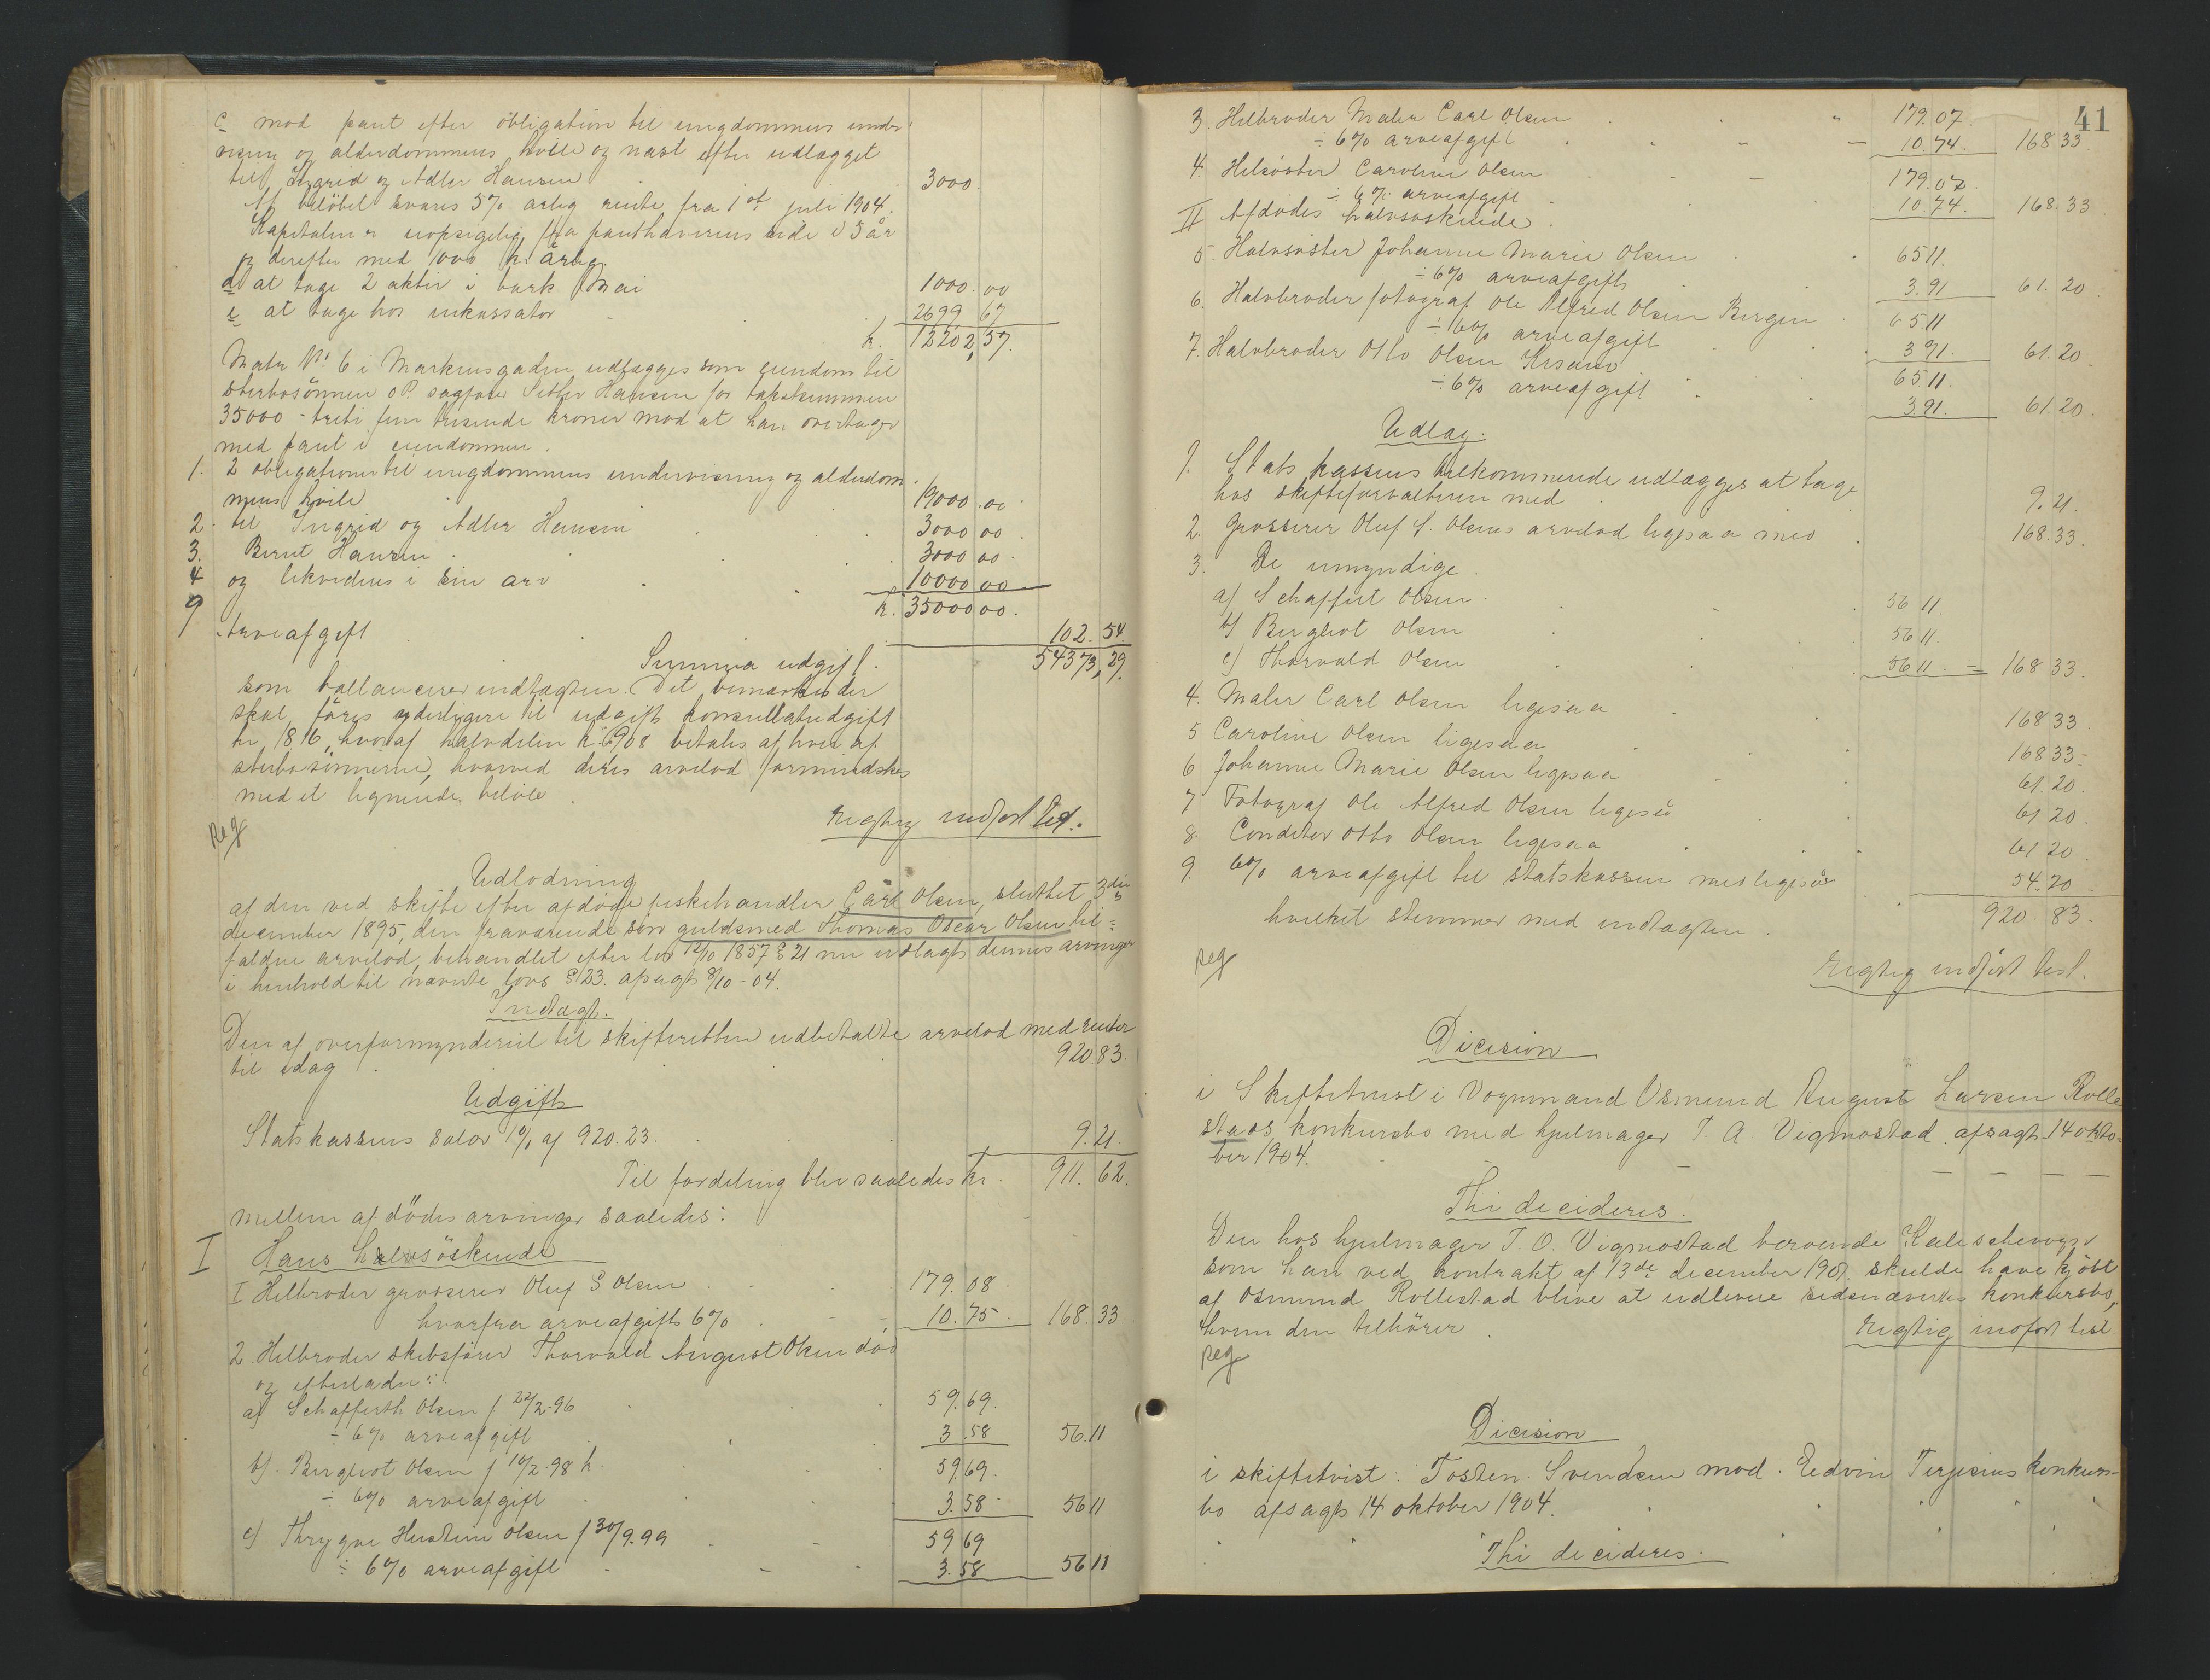 c mod pant efter obligation til ungdommens under
visning og alderdommens hvile og næst efter udlægget
til Ingrid og Adler Hansen 3000.
Af beløbet svares 5% årlig rente fra 1st juli 1904.
Kapitalen er uopsigelig fra panthaverens side i 5 år
og derefter med 1000 k. årlig.
d at tage 2 aktier i bark Mai 1000.00
e at tage hos inkassator 2699 67
k. 12202,57.
Matr No 6 i Markensgaden udlægges som eiendom til
sterbosønnen oR. sagfører Hansen for takstsummen
35000 - treti fem tusende kroner mod at han overtager
med pant i eiendommen.
1. 2 obligationer til ungdommens undervisning og alderdom
mens hvile 19000.00
2. til Ingrid og Adler Hansen 3000 00
3. Bernt Hansen 3000 00.
4 og likvideres i sin arv 10000 00
k. 35000 00.
9 Arveafgift 102.54.
Summa udgift. 54373,29.
som ballancerer indtægten. Det bemærkes der
skal føres yderligere til udgift konsulatudgift
kr. 18 16, hvoraf halvdelen k. 9.08 betales af hver af
sterbosønnerne, hvorved deres arvelod formindskes
med et lignende beløb.
Reg
rigtig indført test.
Udlodning
af den ved skifte efter afdøde fiskehandler Carl Olsen, sluttet 3die
december 1895, den fraværende søn guldsmed Thomas Oscar Olsen til=
faldne arvelod, behandlet efter lov 12/10 1857 § 21 nu udlagt dennes arvinger
i henhold til nævnte lovs § 23. afsagt 8/10-04.
Indtægt.
Den af overformynderiet til skifteretten udbetalte arvelod med renter
til idag 920.83.
Udgift
Statskassens salær 1% af 920.23. 9.21.
Til fordeling blir saaledes kr. 911.62.
mellem afdødes arvinger saaledes:
I Hans helsøskende
1 Helbroder grosserer Oluf S Olsen 179.08.
hvorfra arveafgift 6% 10.75. 168.33
2 Helbroder skibsfører Thorvald August Olsen død
og efterlader:
a) Schafferth Olsen f 22/2-96 59.69.
÷ 6% arveafgift 3.58 56.11
b). Bergliot Olsen f 10/2-98 k. 59.69.
÷ 6% arveafgift 3.58. 56 11
c) Thrygve Hustein Olsen f 30/9.99 59 69
÷ 6% arveafgift 3.58 56 11
41
3. Helbroder Maler Carl Olsen 179.07.
÷ 6% arveafgift 10.74. 168 33.
4. Helsøster Caroline Olsen 179.07.
÷ 6% arveafgift 10.74. 168.33
II Afdødes halvsøskende.
5. Halvsøster Johanne Marie Olsen 65 11.
÷ 6% arveafgift 3.91 61.20
6. Halvbroder fotograf Ole Alfred Olsen Bergen 65 11
÷ 6% arveafgift 3 91. 61.20.
7. Halvbroder Otto Olsen Krsand 65.11.
÷ 6% arveafgift 3 91. 61.20.
Udlæg.
1. Statskassens tilkommende udlægges at tage
hos skifteforvalteren med 9.21.
2. Grosserer Oluf S. Olsens arvelod ligesaa med 168.33.
3. De umyndige.
a) Schaffert Olsen. 56 11.
b) Bergliot Olsen 56 11.
c) Thorvald Olsen 56 11 = 168 33.
4. Maler Carl Olsen ligesaa 168 33.
5 Caroline Olsen ligesaa 168 33.
6 Johanne Marie Olsen ligesaa 61.20.
7 Fotograf Ole Alfred Olsen ligeså 61 20.
8. Conditor Otto Olsen ligesaa 61 20.
9. 6% arveafgift til statskassen med ligeså 54.20
hvilket stemmer med indtægten. 920.83.
Reg
rigtig indført test.
Dicision
i Skiftetvist i Vognmand Osmund August Larsen Rolle
stads konkursbo med hjulmager T. A. Vigmostad afsagt 14 okto=
ber 1904.
Thi decideres.
Den hos hjulmager T. O. Vigmostad beroende Kaleschevogn
som han ved kontrakt af 13de december 190. skulde have kjøbt
af Osmund Rollestad blive at udlevere sidstnævntes konkursbo,
hvem den tilhører.
rigtig indført test
Reg
Dicision
i skiftetvist: Tosten Svendsen mod. Edvin Terjesens konkurs-
bo afsagt 14 oktober 1904.
Thi decideres.